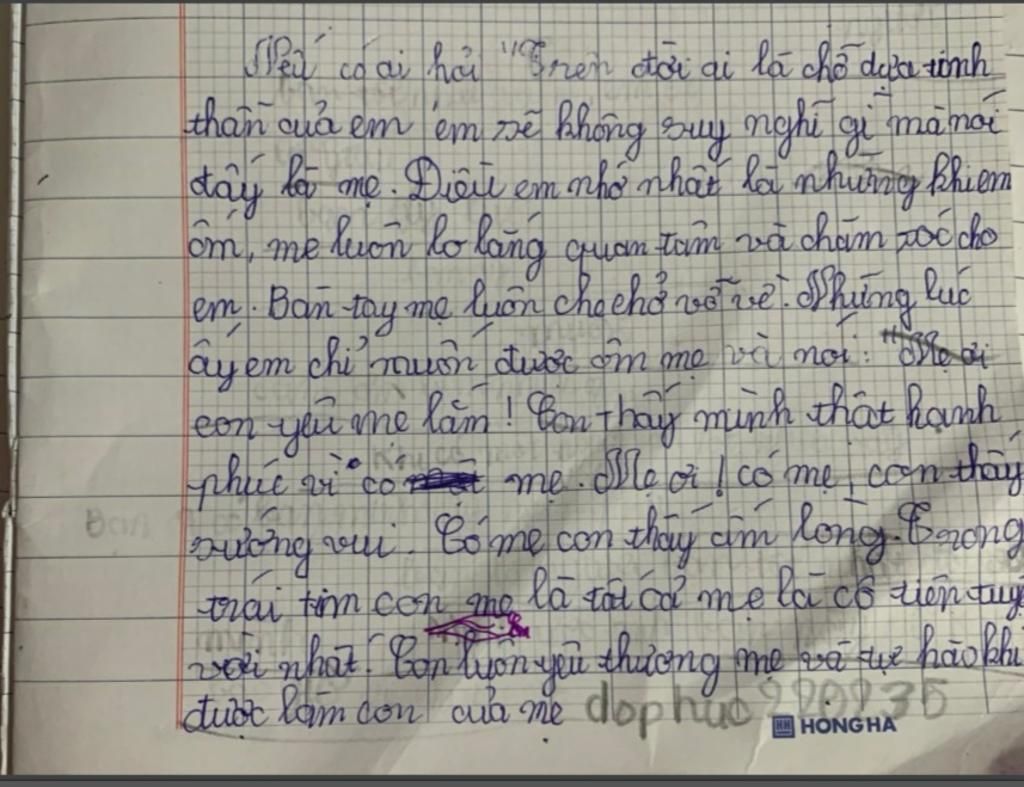 Nếu có ai hỏi "Trên đời ai là chỗ dựa tinh
thần của em em sẽ không suy nghĩ gì mà nói
đấy là mẹ. Điều em nhớ nhất là những khi em
ốm, mẹ luôn lo lắng quan tâm và chăm sóc cho
em. Bàn tay mẹ luôn che chở vỗ về. Những lúc
ấy em chỉ muốn được ôm mẹ và nói: "Mẹ ơi
con yêu mẹ lắm! Con thấy mình thật hạnh
phúc vì có mẹ. Mẹ ơi! có mẹ, con thấy
sướng vui. Có mẹ con thấy ấm lòng. Trong
trái tim con mẹ là tất cả mẹ là cô tiên tuyệt
vời nhất. Con luôn yêu thương mẹ và tự hào khi
được làm con của mẹ dophuc290935
HH HONG HA